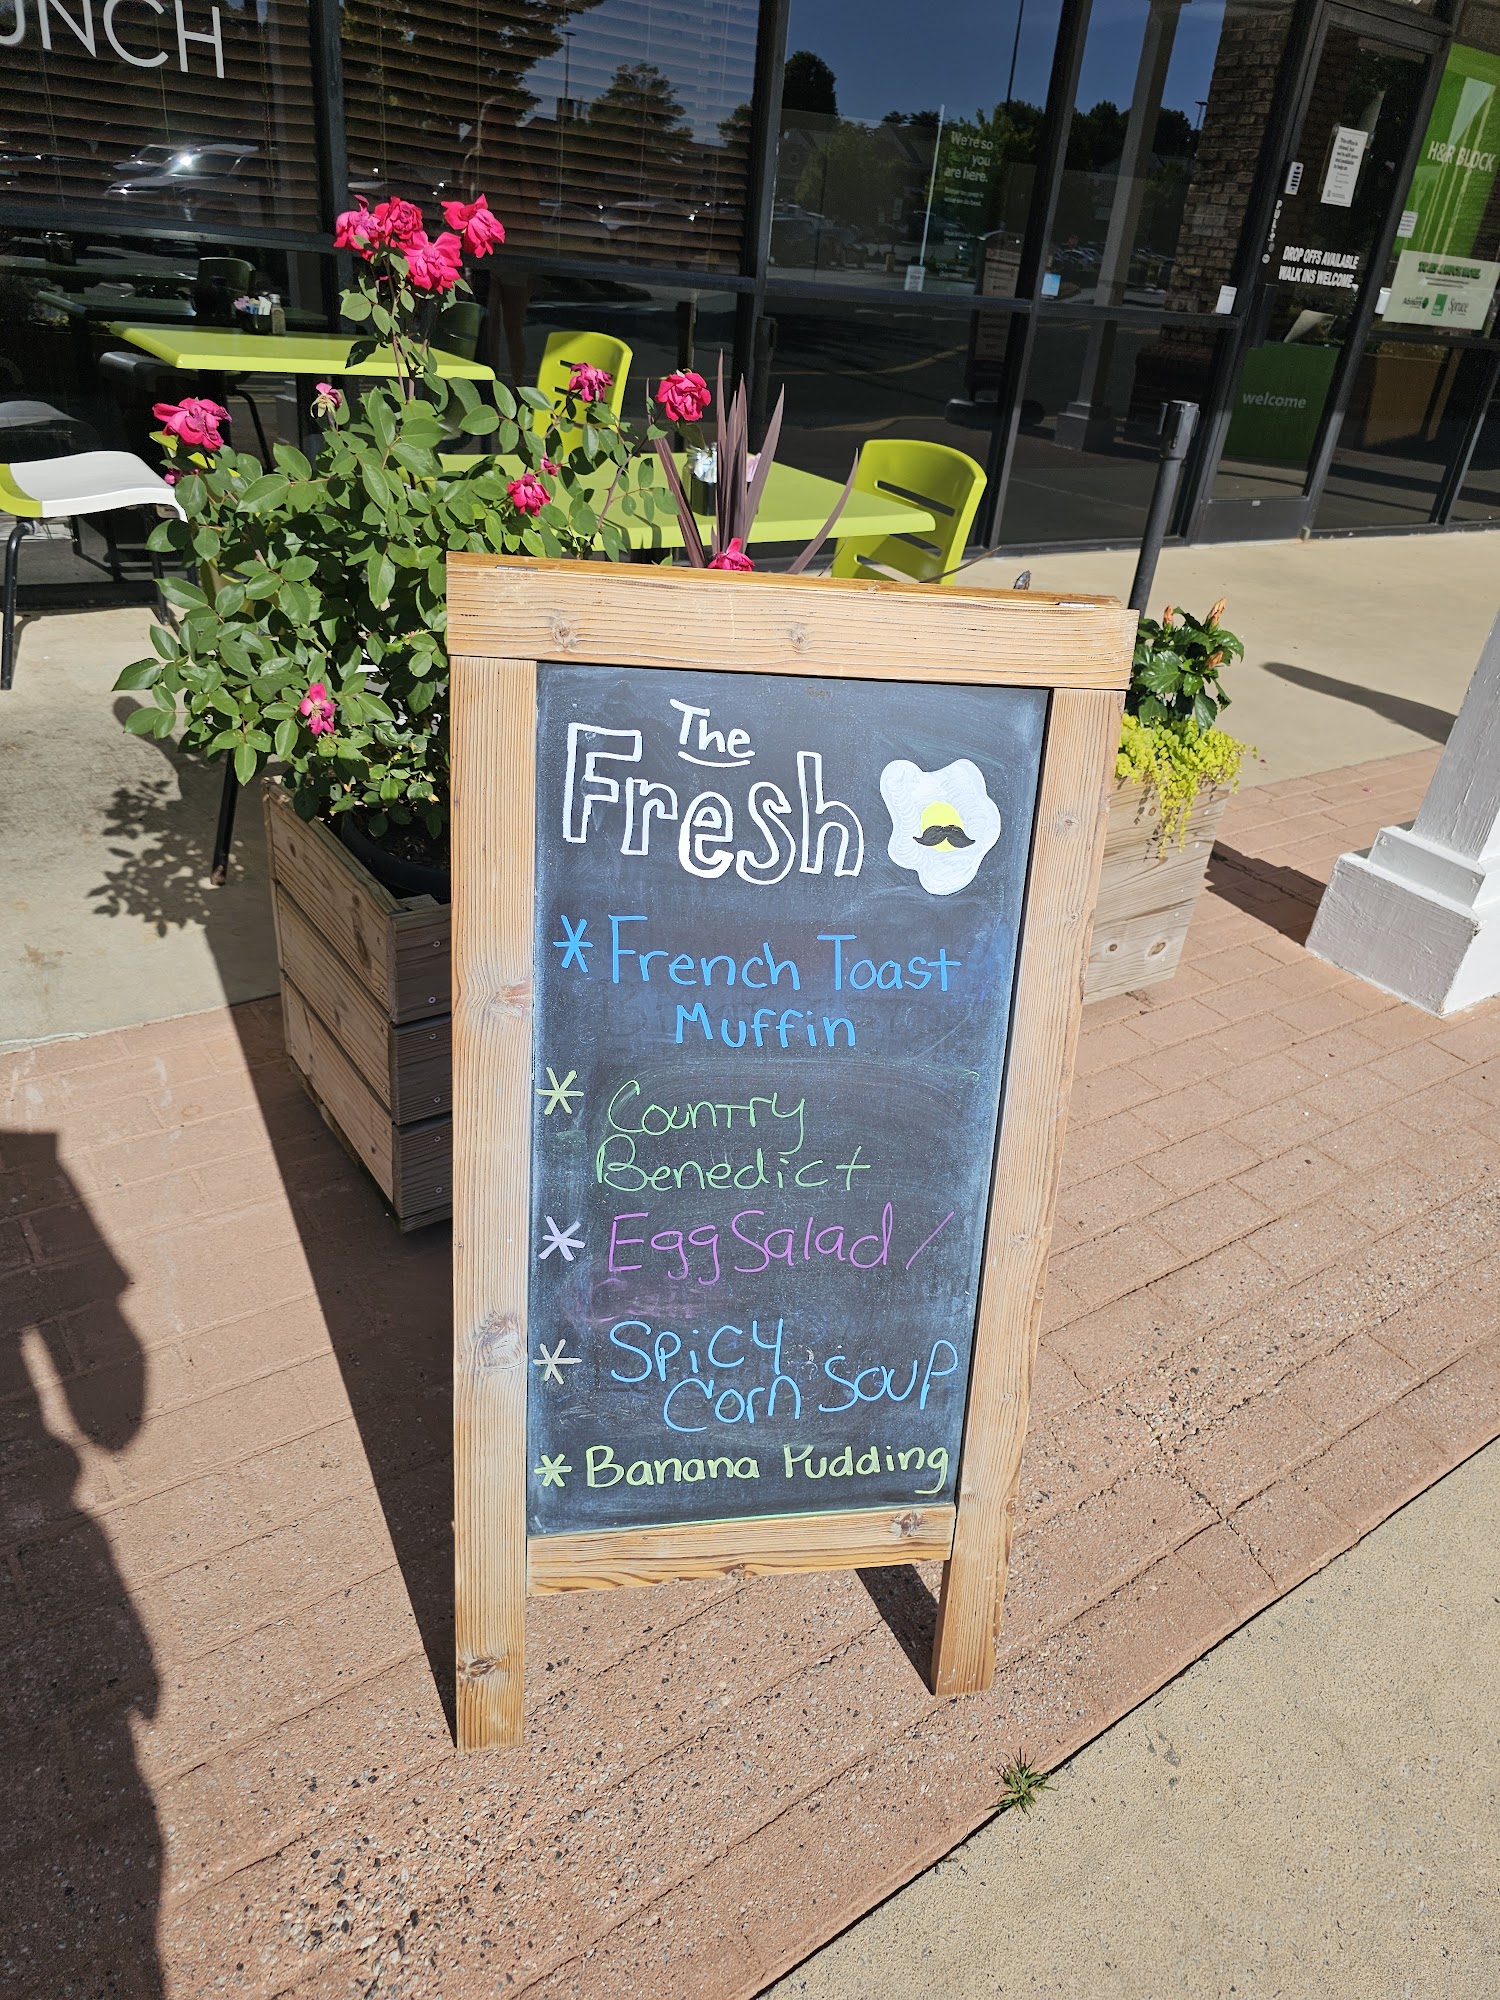 UNCH
We're so
you
are here.
H&R BLOCK
DROP OFFS AVAILABLE
WALK INS WELCOME
Spruce
welcome
The
Fresh
* French Toast
Muffin
* Country
Benedict
* Egg Salad /
* Spicy
Corn Soup
* Banana Pudding